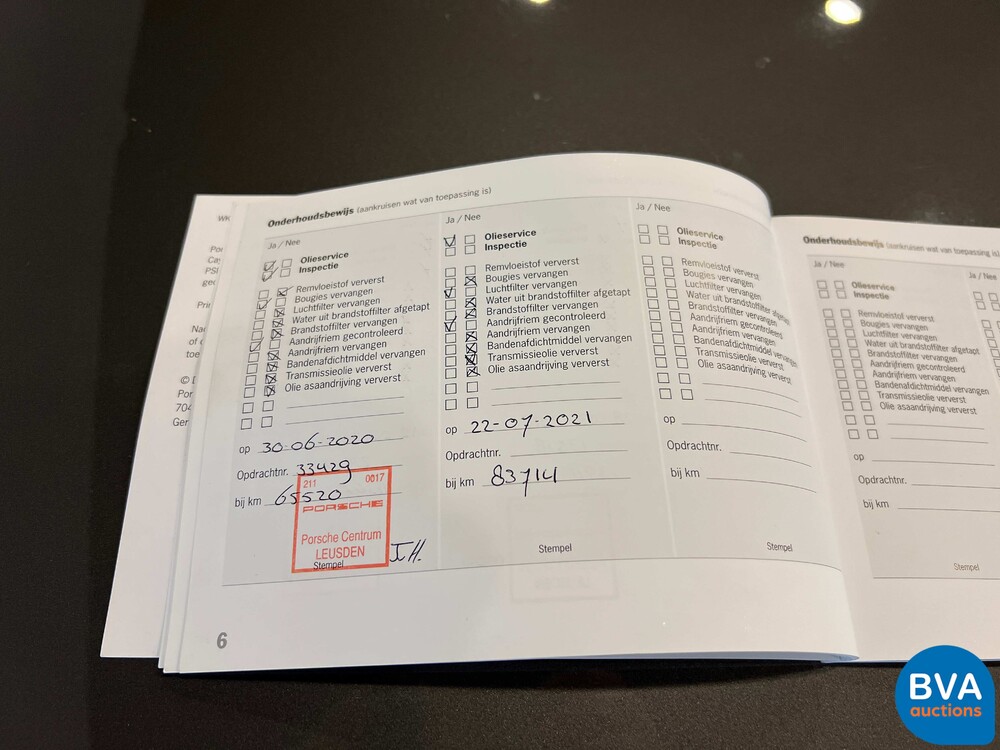 WK
Por
Cay
PSI
gec
Prin
Nac
of c
toe
© D
Por
704
Ger
Onderhoudsbewijs (aankruisen wat van toepassing is)
Ja / Nee
Olieservice
Inspectie
Remvloeistof ververst
Bougies vervangen
Luchtfilter vervangen
Water uit brandstoffilter afgetapt
Brandstoffilter vervangen
Aandrijfriem gecontroleerd
Aandrijfriem vervangen
Bandenafdichtmiddel vervangen
Transmissieolie ververst
Olie asaandrijving ververst
op 30-06-2020
Opdrachtnr. 33429
bij km 65520
211 0017
PORSCHE
Porsche Centrum
LEUSDEN
Stempel
J.H.
6
Ja / Nee
Olieservice
Inspectie
Remvloeistof ververst
Bougies vervangen
Luchtfilter vervangen
Water uit brandstoffilter afgetapt
Brandstoffilter vervangen
Aandrijfriem gecontroleerd
Aandrijfriem vervangen
Bandenafdichtmiddel vervangen
Transmissieolie ververst
Olie asaandrijving ververst
op 22-07-2021
Opdrachtnr.
bij km 83714
Stempel
Ja / Nee
Olieservice
Inspectie
Remvloeistof ververst
Bougies vervangen
Luchtfilter vervangen
Water uit brandstoffilter afgetapt
Brandstoffilter vervangen
Aandrijfriem gecontroleerd
Aandrijfriem vervangen
Bandenafdichtmiddel vervangen
Transmissieolie ververst
Olie asaandrijving ververst
op
Opdrachtnr.
bij km
Stempel
Onderhoudsbewijs (aankruisen wat van toepassing is)
Ja / Nee
Olieservice
Inspectie
Remvloeistof ververst
Bougies vervangen
Luchtfilter vervangen
Water uit brandstoffilter afgetapt
Brandstoffilter vervangen
Aandrijfriem gecontroleerd
Aandrijfriem vervangen
Bandenafdichtmiddel vervangen
Transmissieolie ververst
Olie asaandrijving ververst
op
Opdrachtnr.
bij km
Stempel
Ja / Nee
BVA
auctions